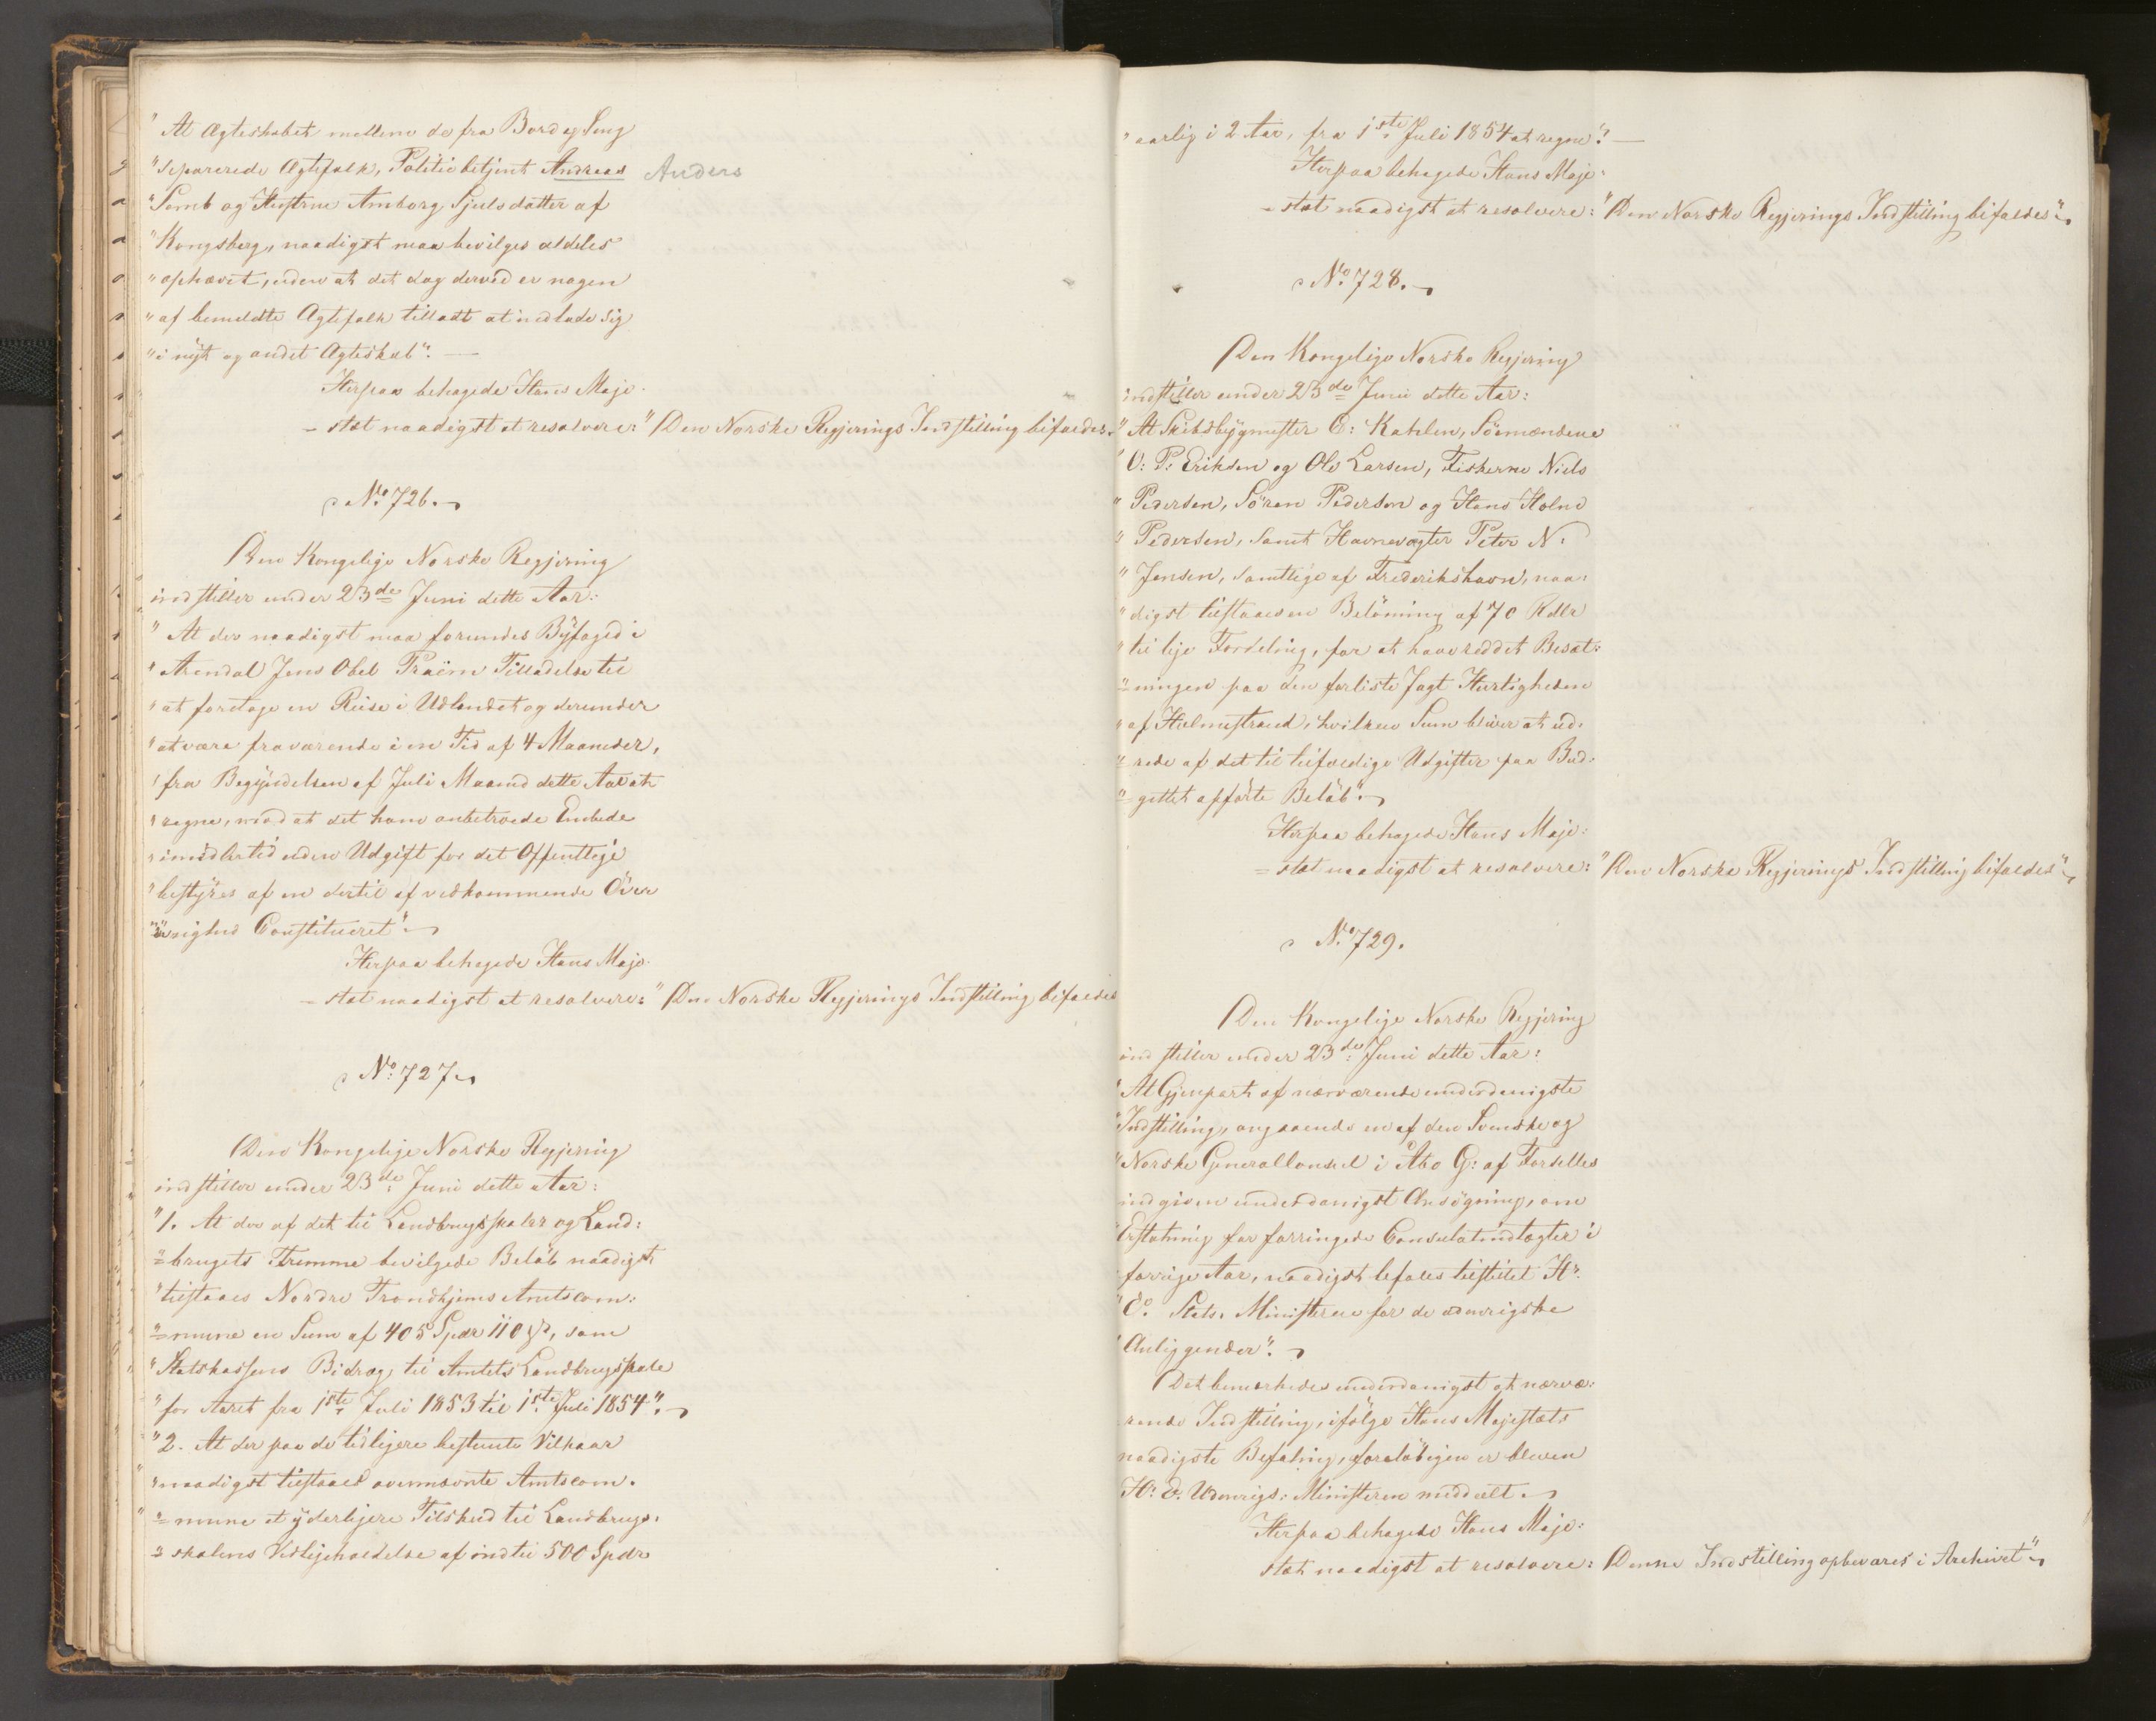 " At Ægteskabet mellem de fra Bord og Seng
" separerede Ægtefolk, Politiebetjent Andreas Anders
" Semb og Hustrue Amborg Sjulsdatter af
" Kongsberg, naadigst maa bevilges aldeles
" ophævet, uden at det dog derved er nogen
" af bemeldte Ægtefolk tilladt at indlade sig
" i nyt og andet Ægteskab". —
Herpaa behagede Hans Maje-
- stæt naadigst at resolvere: " Den Norske Regjerings Indstilling bifaldes.
No. 726.
Den Kongelige Norske Regjering
indstiller under 23de Juni dette Aar:
" At der naadigst maa forundes Byfoged i
" Arendal Jens Obel Praëm Tilladelse til
" at foretage en Reise i Udlandet og derunder
" at være fraværende i en Tid af 4 Maaneder,
" fra Begyndelsen af Juli Maaned dette Aar at
" regne, mod at det ham anbetroede Embede
" imidlertid uden Udgift for det Offentlige
" bestyres af en dertil af vedkommende Över
"= vrighed Constitueret".
Herpaa behagede Hans Maje-
- stæt naadigst at resolvere: " Den Norske Regjerings Indstilling bifaldes
No. 727.
Den Kongelige Norske Regjering
indstiller under 23de Juni dette Aar:
" 1. At der af det til Landbrugsskoler og Land:
"= brugets Fremme bevilgede Beløb naadigst
" tilstaaes Nordre Trondhjems Amtscom:
"= mune en Sum af 405 Spdr 110 ß, som
" Statskassens Bidrag til Amtets Landbrugsskole
" for Aaret fra 1ste Juli 1853 til 1ste Juli 1854".
" 2. At der paa de tidligere bestemte Vilkaar
" naadigst tilstaaes ovennævnte Amtscom.
"= mune et yderligere Tilskud til Landbrugs.
"= skolens Vedligeholdelse af indtil 500 Spdr
" aarlig i 2 Aar, fra 1ste Juli 1854 at regne". —
Herpaa behagede Hans Maje-
- stæt naadigst at resolvere: " Den Norske Regjerings Indstilling bifaldes".
No. 728.
Den Kongelige Norske Regjering
indstiller under 23de Juni dette Aar:
" At Skibsbygmester C: Kahlen, Sömændene
" O: P: Eriksen og Ole Larsen, Fiskerne Niels
" Pedersen, Sören Pedersen og Hans Holm
" Pedersen, samt Havnevogter Peter N:
" Jensen, samtlige af Frederikshavn, naa:
" digst tilstaaes en Belöning af 70 Rdlr
" til lige Fordeling, for at have reddet Besæt:
"= ningen paa den forliste Jagt Hurtigheden
" af Holmestrand, hvilken Sum bliver at ud:
"= rede af det til tilfældige Udgifter paa Bud:
"= gettet opførte Beløb".
Herpaa behagede Hans Maje:
= stæt naadigst at resolvere: " Den Norske Regjerings Indstilling bifaldes".
No. 729.
Den Kongelige Norske Regjering
indstiller under 23de Juni dette Aar:
" At Gjenpart af nærværende underdanigste
" Indstilling, angaaende en af den Svenske og
" Norske Generalconsul i Åbo G: af Forselles
indgiven underdanigst Ansögning, om
" Erstatning for forringede Consulatindtægter i
forrige Aar, naadigst befales tilstillet Hr.
" E. Stats. Ministeren for de udenrigske
" Anliggender".
Det bemærkedes underdanigst at nærvæ:
rende Indstilling, ifölge Hans Majestæts
naadigste Befaling, foreløbigen er bleven
Hr. E. Udenrigs: Ministeren meddelt.
Herpaa behagede Hans Maje:
stæt naadigst at resolvere: Denne Indstilling opbevares i Archivet".